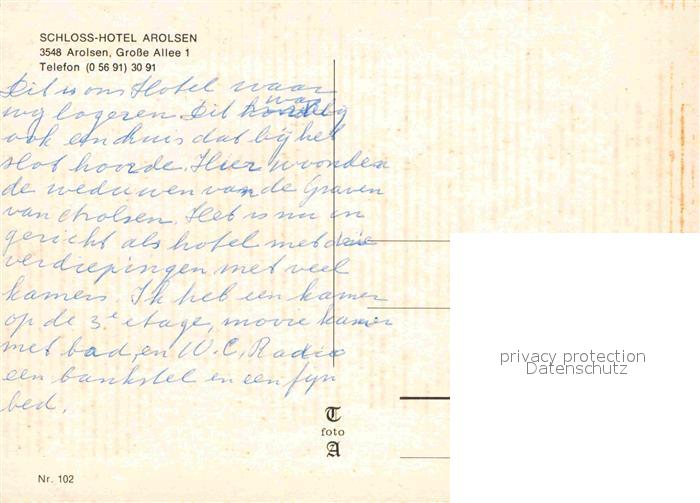 SCHLOSS-HOTEL AROLSEN
3548 Arolsen, Große Allee 1
Telefon (0 56 91) 30 91
Dit is ons Hotel waar
wij logeren. Dit was
ook een huis dat bij het
slot hoorde. Hier woonden
de weduwen van de Graven
van Arolsen. Het is nu in
gericht als hotel met drie
verdiepingen met veel
kamers. Ik heb een kamer
op de 3e etage, mooie kamer
met bad, en W.C, Radio
een bankstel en een fijn
bed.
T
foto
A
Nr. 102
privacy protection
Datenschutz